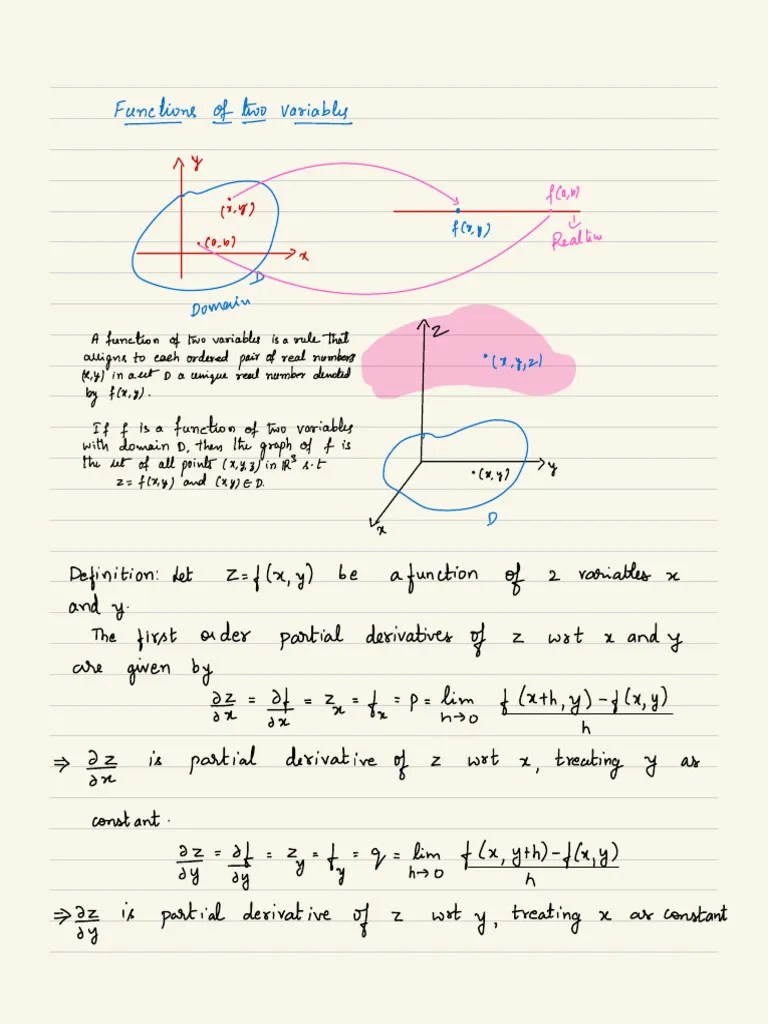 Functions of two variables
y
(x,y)
(a,b)
x
D
Domain
f(x,y)
f(a,b)
↓
Real line
A function of two variables is a rule that
assigns to each ordered pair of real numbers
(x,y) in a set D a unique real number denoted
by f(x,y).
If f is a function of two variables
with domain D, then the graph of f is
the set of all points (x,y,z) in ℝ³ s.t
z = f(x,y) and (x,y) ∈ D.
z
(x,y,z)
y
(x,y)
x
D
Definition: Let z=f(x,y) be a function of 2 variables x
and y.
The first order partial derivatives of z wrt x and y
are given by
∂z/∂x = ∂f/∂x = z_x = f_x = p = lim h→0 f(x+h, y) - f(x,y) / h
⇒ ∂z/∂x is partial derivative of z wrt x, treating y as
constant.
∂z/∂y = ∂f/∂y = z_y = f_y = q = lim h→0 f(x, y+h) - f(x,y) / h
⇒ ∂z/∂y is partial derivative of z wrt y, treating x as constant